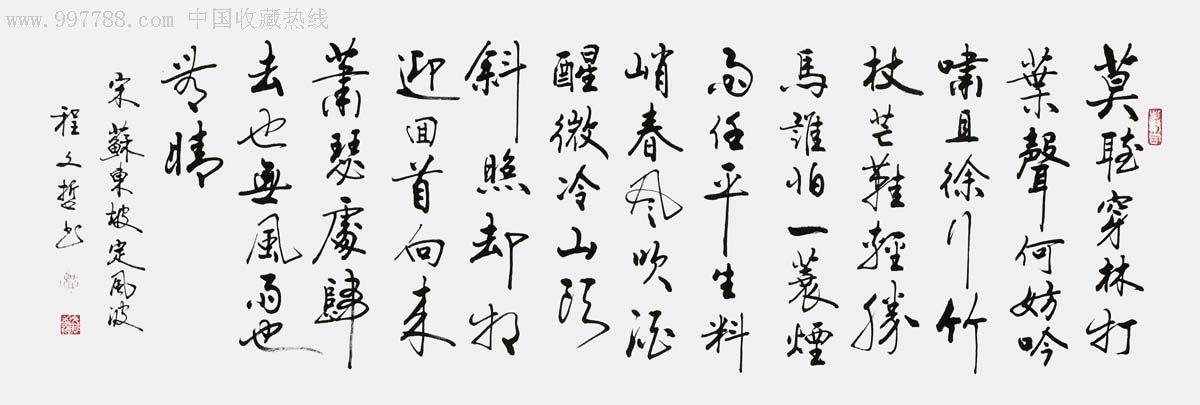 www.997788.com 中国收藏热线
莫聽穿林打
葉聲何妨吟
嘯且徐行竹
杖芒鞋輕勝
馬誰怕一蓑煙
雨任平生料
峭春風吹酒
醒微冷山頭
斜照却相
迎回首向來
蕭瑟處歸
去也無風雨也
無晴
宋蘇東坡定風波
程文哲书